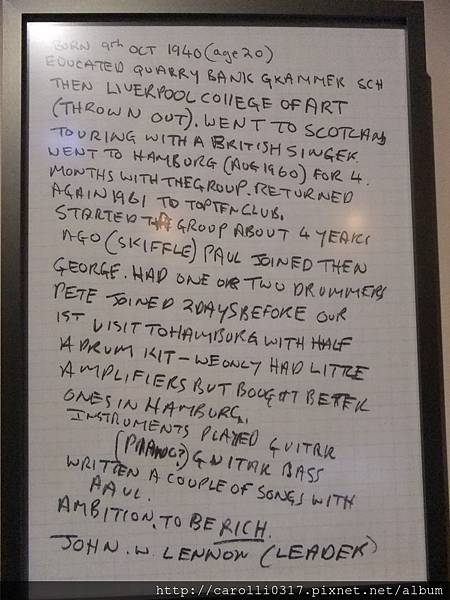 BORN 9TH OCT 1940 (age 20)
EDUCATED QUARRY BANK GRAMMER SCH
THEN LIVERPOOL COLLEGE OF ART
(THROWN OUT). WENT TO SCOTLAND
TOURING WITH A BRITISH SINGER.
WENT TO HAMBURG (AUG 1960) FOR 4.
MONTHS WITH THE GROUP. RETURNED
AGAIN 1961 TO TOPTEN CLUB.
STARTED THE GROUP ABOUT 4 YEARS
AGO (SKIFFLE) PAUL JOINED THEN
GEORGE. HAD ONE OR TWO DRUMMERS
PETE JOINED 2 DAYS BEFORE OUR
1ST VISIT TO HAMBURG WITH HALF
A DRUM KIT - WE ONLY HAD LITTLE
AMPLIFIERS BUT BOUGHT BETTER
ONES IN HAMBURG.
INSTRUMENTS PLAYED GUITAR
(PIANO?) GUITAR BASS
WRITTEN A COUPLE OF SONGS WITH
PAUL.
AMBITION. TO BE RICH.
JOHN. W. LENNON (LEADER)
http://carolli0317.pixnet.net/album